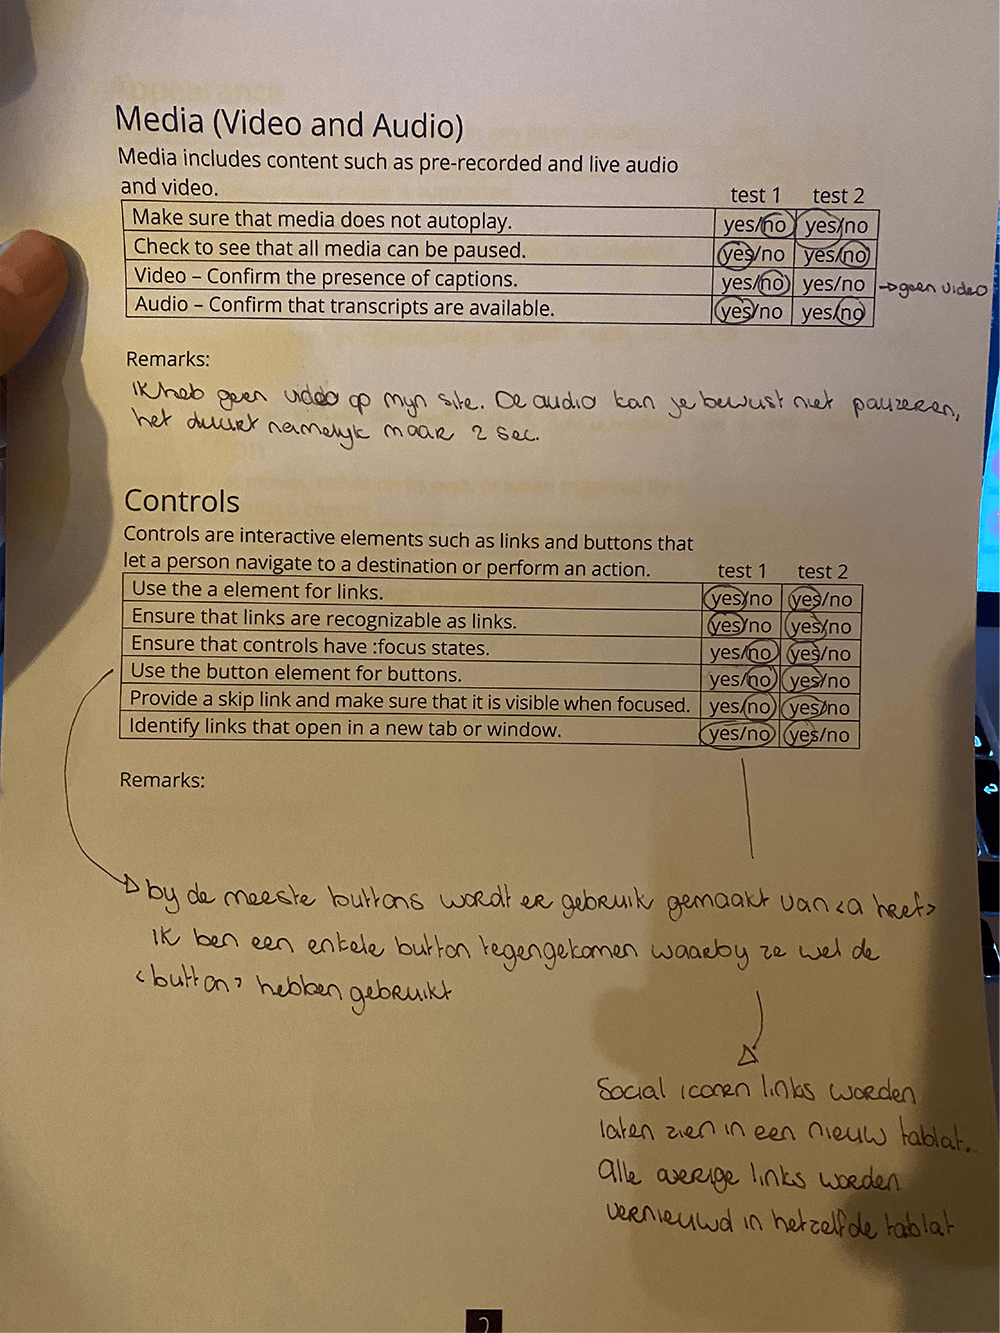 Media (Video and Audio)
Media includes content such as pre-recorded and live audio
and video.
test 1 test 2
Make sure that media does not autoplay. yes/no yes/no
Check to see that all media can be paused. yes/no yes/no
Video – Confirm the presence of captions. yes/no yes/no → geen video
Audio – Confirm that transcripts are available. yes/no yes/no
Remarks:
Ik heb geen video op mijn site. De audio kan je bewust niet pauzeren,
het duurt namelijk maar 2 sec.
Controls
Controls are interactive elements such as links and buttons that
let a person navigate to a destination or perform an action.
test 1 test 2
Use the a element for links. yes/no yes/no
Ensure that links are recognizable as links. yes/no yes/no
Ensure that controls have :focus states. yes/no yes/no
Use the button element for buttons. yes/no yes/no
Provide a skip link and make sure that it is visible when focused. yes/no yes/no
Identify links that open in a new tab or window. yes/no yes/no
Remarks:
by de meeste buttons wordt er gebruik gemaakt van <a href>
Ik ben een enkele button tegengekomen waarby ze wel de
<button> hebben gebruikt
Social iconen links worden
laten zien in een nieuw tablat.
alle overige links worden
vernieuwd in hetzelfde tablat
2